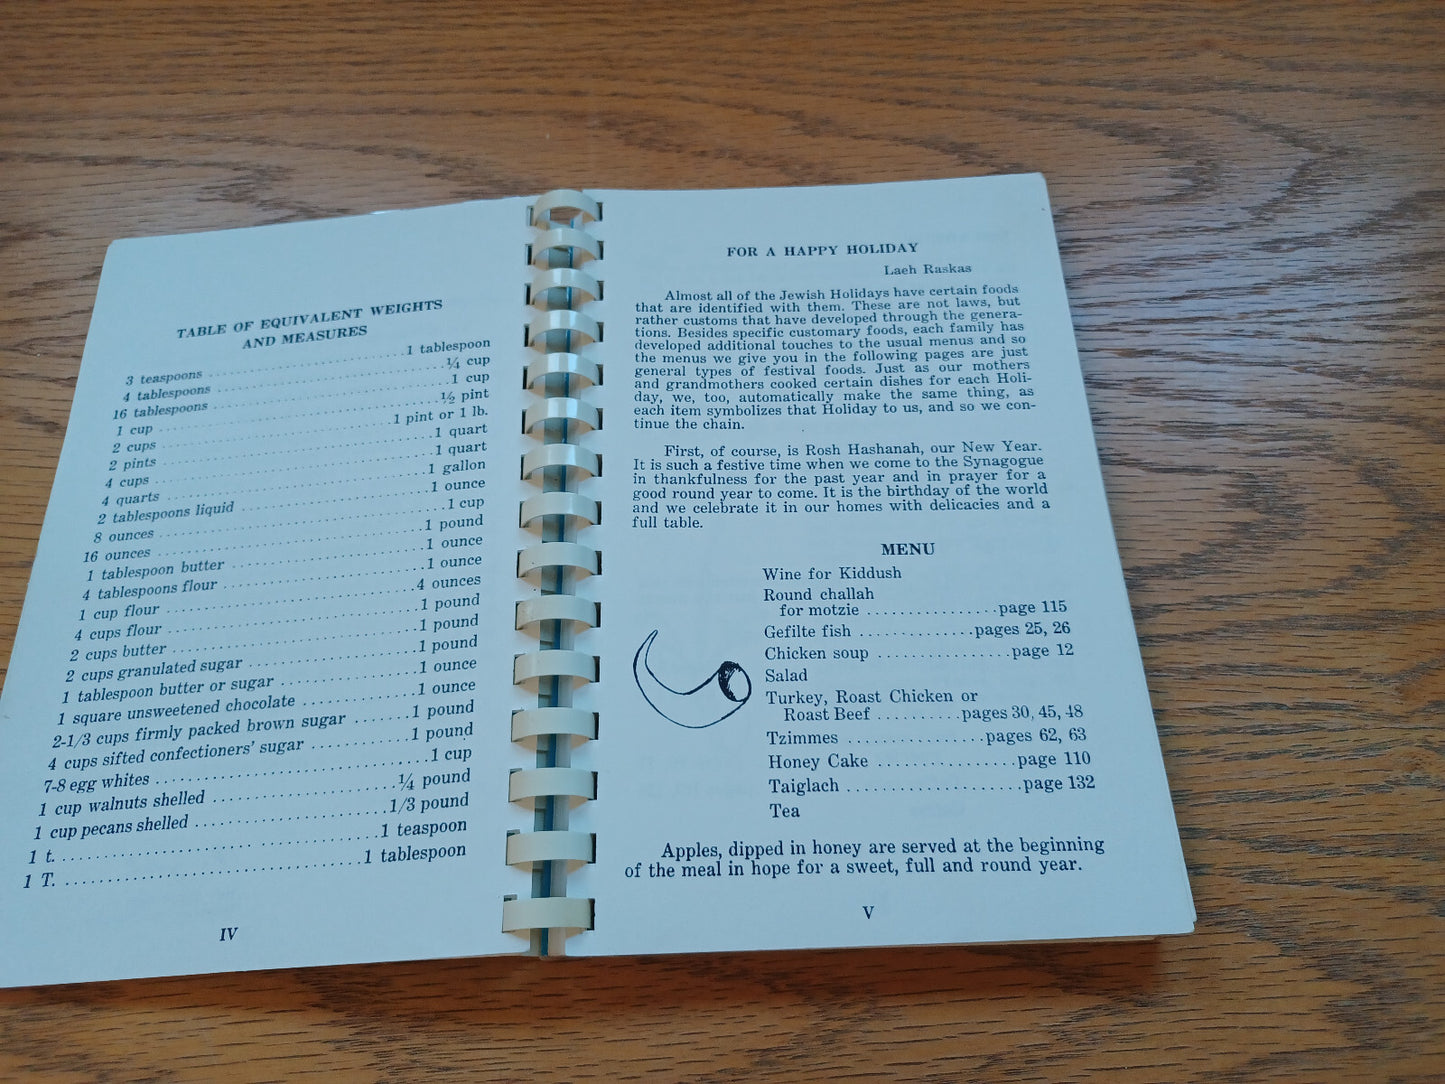 TABLE OF EQUIVALENT WEIGHTS
AND MEASURES
3 teaspoons ........ 1 tablespoon
4 tablespoons ........ ¼ cup
16 tablespoons ........ 1 cup
1 cup ........ ½ pint
2 cups ........ 1 pint or 1 lb.
2 pints ........ 1 quart
4 cups ........ 1 quart
4 quarts ........ 1 gallon
2 tablespoons liquid ........ 1 ounce
8 ounces ........ 1 cup
16 ounces ........ 1 pound
1 tablespoon butter ........ 1 ounce
4 tablespoons flour ........ 1 ounce
1 cup flour ........ 4 ounces
4 cups flour ........ 1 pound
2 cups butter ........ 1 pound
2 cups granulated sugar ........ 1 pound
1 tablespoon butter or sugar ........ 1 ounce
1 square unsweetened chocolate ........ 1 ounce
2-1/3 cups firmly packed brown sugar ....... 1 pound
4 cups sifted confectioners' sugar ........ 1 pound
7-8 egg whites ........ 1 cup
1 cup walnuts shelled ........ ¼ pound
1 cup pecans shelled ........ 1/3 pound
1 t. ........ 1 teaspoon
1 T. ........ 1 tablespoon
IV
FOR A HAPPY HOLIDAY
Laeh Raskas
Almost all of the Jewish Holidays have certain foods
that are identified with them. These are not laws, but
rather customs that have developed through the genera-
tions. Besides specific customary foods, each family has
developed additional touches to the usual menus and so
the menus we give you in the following pages are just
general types of festival foods. Just as our mothers
and grandmothers cooked certain dishes for each Holi-
day, we, too, automatically make the same thing, as
each item symbolizes that Holiday to us, and so we con-
tinue the chain.
First, of course, is Rosh Hashanah, our New Year.
It is such a festive time when we come to the Synagogue
in thankfulness for the past year and in prayer for a
good round year to come. It is the birthday of the world
and we celebrate it in our homes with delicacies and a
full table.
MENU
Wine for Kiddush
Round challah
for motzie ........ page 115
Gefilte fish ........ pages 25, 26
Chicken soup ........ page 12
Salad
Turkey, Roast Chicken or
Roast Beef ........ pages 30, 45, 48
Tzimmes ........ pages 62, 63
Honey Cake ........ page 110
Taiglach ........ page 132
Tea
Apples, dipped in honey are served at the beginning
of the meal in hope for a sweet, full and round year.
V